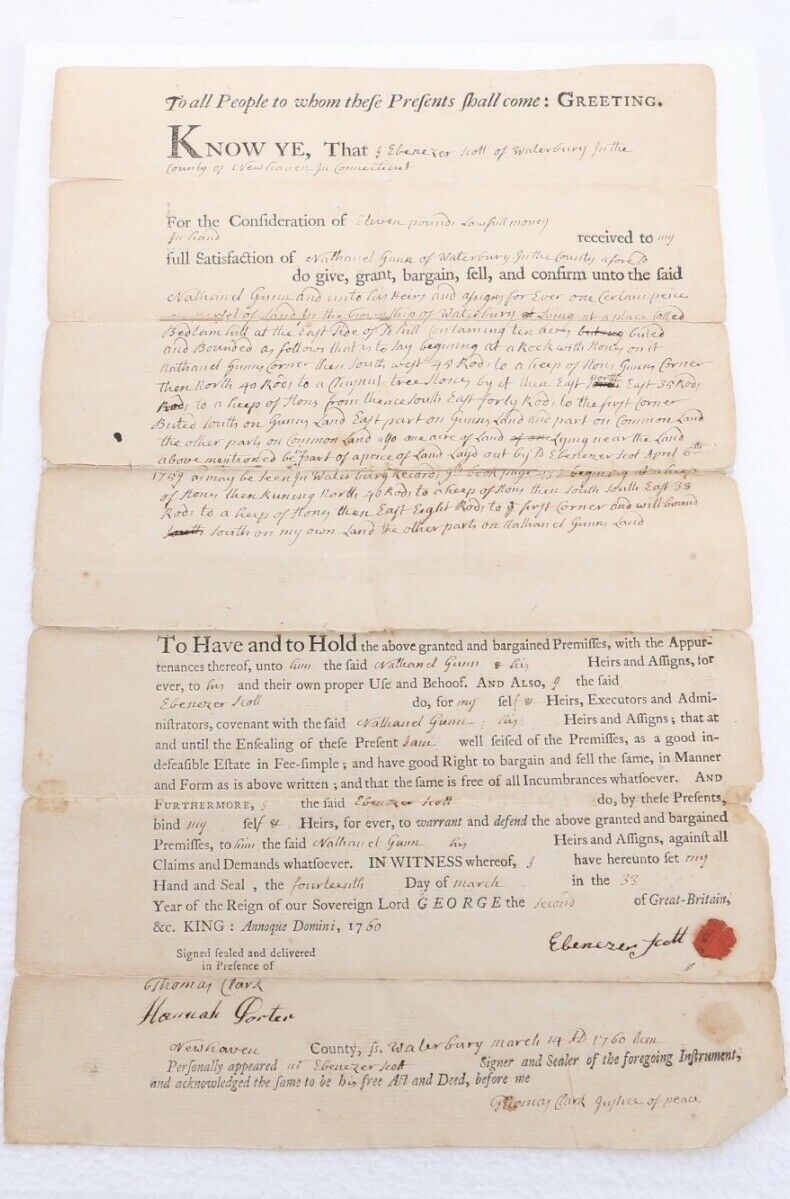 To all People to whom theſe Preſents ſhall come: GREETING.
KNOW YE, That I Ebenezer Scott of Waterbury In the
County of Newhaven In Connecticut
For the Conſideration of Eleven pounds Lawfull money
In hand received to my
full Satisfaction of Nathaniel Gunn of Waterbury In the County afores.d
do give, grant, bargain, ſell, and confirm unto the ſaid
Nathaniel Gunn and unto his Heirs and aſsigns for Ever one Certain peice
or parsel of Land In the Township of Waterbury Lying at a place Called
Bedlam hill at the East Side of sd hill Containing ten acres buted
and Bounded as follows that is to say begining at a Rock with stones on it
Nathaniel Gunns Corner then South west 45 Rods to a heep of stons Gunns Corner
then North 40 Rods to a Chesnut tree stones by it then East North East 35 Rods
Rods to a heep of stons from thence South East forty Rods to the first Corner
Buted South on Gunns Land East part on Gunns Land and part on Common Land
the other parts on Common Land also one acre of Land Lying near the Land
above mentioned being part of a peice of Land Layd out by sd Ebenezer Scot April 6th
1759 as may be seen In Waterbury Records book page begining at a heep
of stons then Runing North 40 Rods to a heep of stons then South South East 33
Rods to a heep of stones then East Eight Rods to ye first Corner and will bound
South South on my own Land the other parts on Nathaniel Gunns Land
To Have and to Hold the above granted and bargained Premiſſes, with the Appur-
tenances thereof, unto him the ſaid Nathaniel Gunn & his Heirs and Aſſigns, for
ever, to his and their own proper Uſe and Behoof. AND ALSO, I the ſaid
Ebenezer Scott do, for my ſelf & Heirs, Executors and Admi-
niſtrators, covenant with the ſaid Nathaniel Gunn his Heirs and Aſſigns; that at
and until the Enſealing of theſe Preſent I am well ſeiſed of the Premiſſes, as a good in-
defeaſible Eſtate in Fee-ſimple; and have good Right to bargain and ſell the ſame, in Manner
and Form as is above written; and that the ſame is free of all Incumbrances whatſoever. AND
FURTHERMORE, I the ſaid Ebenezer Scott do, by theſe Preſents,
bind my ſelf & Heirs, for ever, to warrant and defend the above granted and bargained
Premiſſes, to him the ſaid Nathaniel Gunn his Heirs and Aſſigns, againſt all
Claims and Demands whatſoever. IN WITNESS whereof, I have hereunto ſet my
Hand and Seal, the fourteenth Day of march in the 33
Year of the Reign of our Sovereign Lord GEORGE the second of Great-Britain,
&c. KING: Annoque Domini, 1760
Ebenezer Scott
Signed ſealed and delivered
in Preſence of
Thomas Clark
Hannah Porter
Newhaven County, ſs. Waterbury march 14 AD 1760 then
Perſonally appeared mr Ebenezer Scott Signer and Sealer of the foregoing Inſtrument,
and acknowledged the ſame to be his free Act and Deed, before me
Thomas Clark Justice of peace